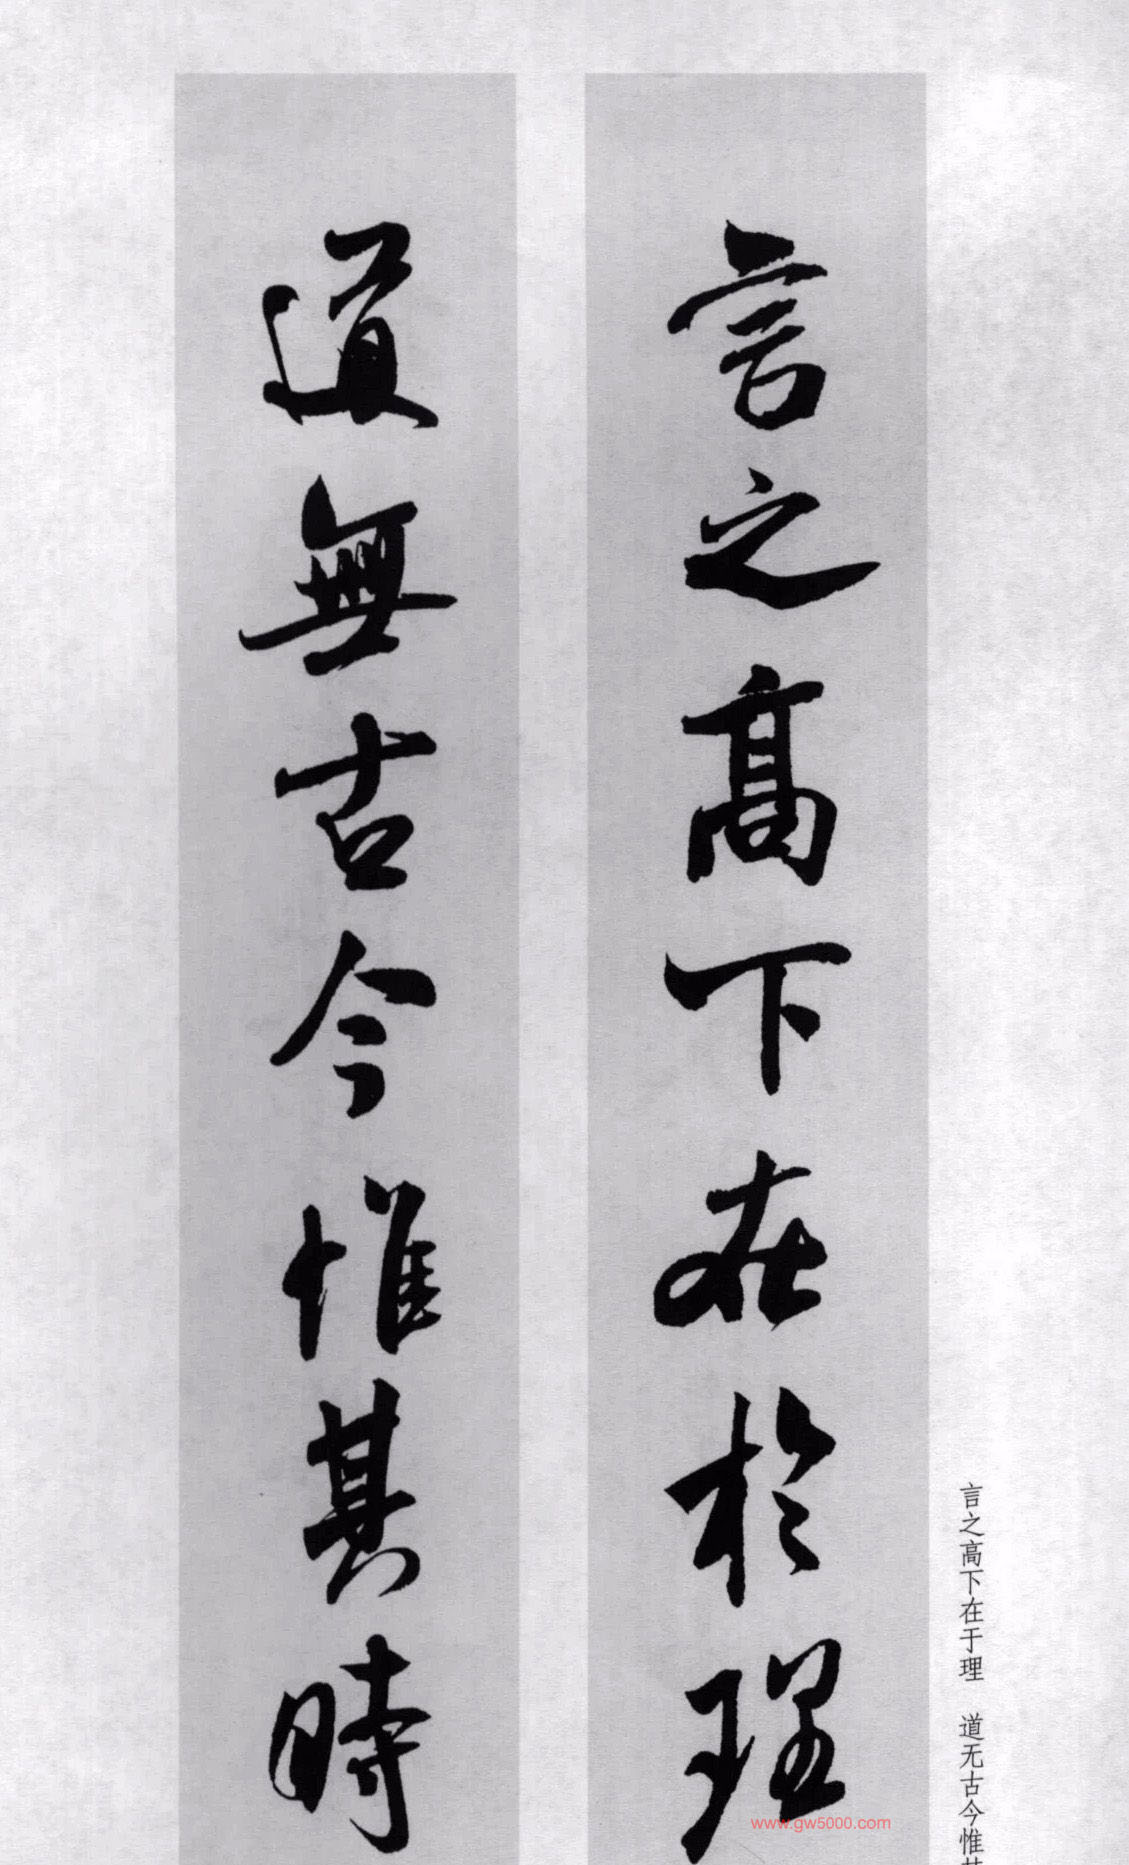 言之高下在於理
道無古今惟其時
言之高下在于理 道无古今惟其
www.gw5000.com